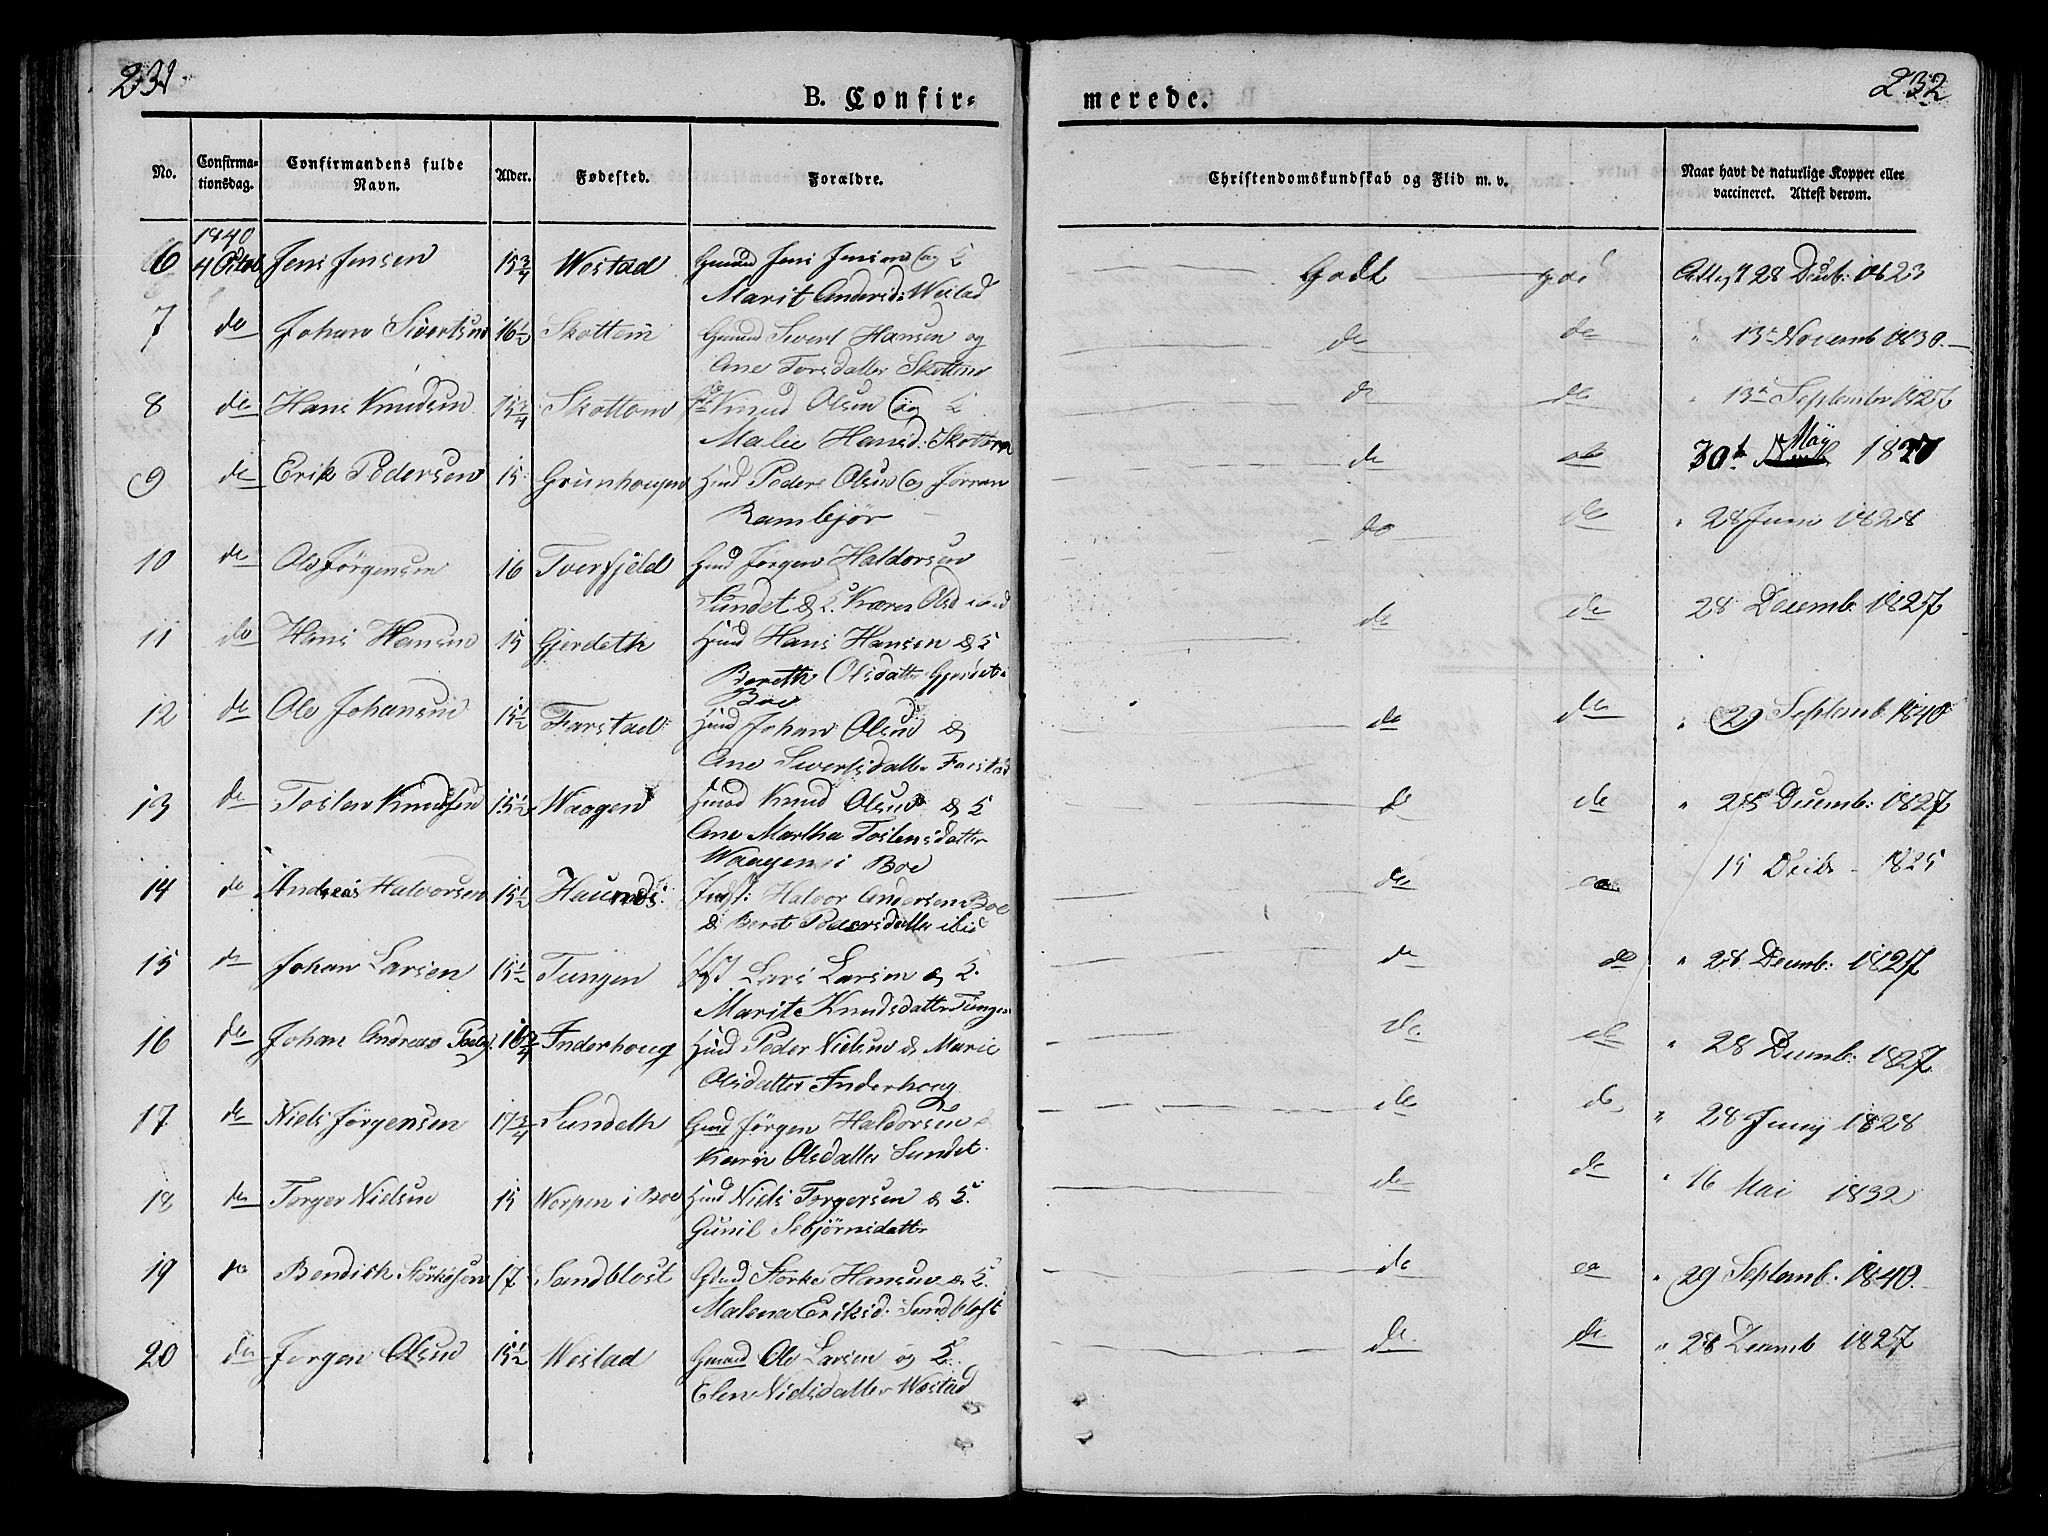 231
232
B. Confir-
merede.
No.
Confirma-
tionsdag.
Confirmandens fulde
Navn.
Alder.
Fødested.
Forældre.
Christendomskundskab og Flid m. v.
Naar havt de naturlige Kopper eller
vaccineret. Attest derom.
1840
6 4 Octob Jens Jensen 15 3/4 Westad Gmand Jens Jensen og
Marit Andersd: Westad
Godt god Attest 28 Decb: 1823
7 do Johan Sivertsen 16 1/2 Skottem Gmand Sivert Hansen og
Ane Torsdatter Skottem
do do " 13de Novemb 1830.
8 do Hans Knudsen 15 3/4 Skottem Knud Olsen og
Malie Hansd: Skottem
do do " 13de September 1826
9 do Erik Pedersen 15 Grünhougen Hmd Peder Olsen og Jorran
Rambjør
do do 30te May 1827
10 do Ole Jørgensen 16 Tverfjeld Gmd Jørgen Haldorsen
Sundet & Karen Olsd ibid
do do " 28 Juni 1828
11 do Hans Hansen 15 Gjerdeth Hmd Hans Hansen &
Bereth Olsdatter Gjerdet i
Boe
do do 28 Decemb: 1827
12 do Ole Johansen 15 1/2 Farstad Hmd Johan Olsen &
Ane Sivertsdatter Farstad
do do " 29 Septemb 1840
13 do Tosten Knudsen 15 1/2 Waagen Hmd Knud Olsen &
Ane Martha Tostensdatter
Waagen i Boe
do do " 28 Decemb: 1827
14 do Andreas Halvorsen 15 1/2 Inds: Halvor Andersen Boe
& Beret Pedersdatter ibid
do do 15 Decbr 1825
15 do Johan Larsen 15 1/2 Tungen Lars Larsen &
Marit Knudsdatter Tungen
do do " 28 Decemb: 1827
16 do Johan Andreas 16 3/4 Inderhoug Hmd Peder Nielsen & Marie
Olsdatter Inderhoug
do do " 28 Decemb: 1827
17 do Niels Jørgensen 17 3/4 Sundeth Gmd Jørgen Haldorsen &
Karen Olsdatter Sundet
do do " 28 Juny 1828
18 do Torger Nielsen 15 Worpen i Boe Hmd Niels Torgersen &
Gunil Sebjørnsdatter
do do " 16 Mai 1832
19 do Bendik Størkesen 17 Sandblost Gmd Størke Hansen &
Malena Eriksd: Sandblost
do do " 29 Septemb: 1840.
20 do Jørgen Olsen 15 1/2 Westad Gmand Ole Larsen og
Elen Nielsdatter Westad
do do " 28 Decemb 1827